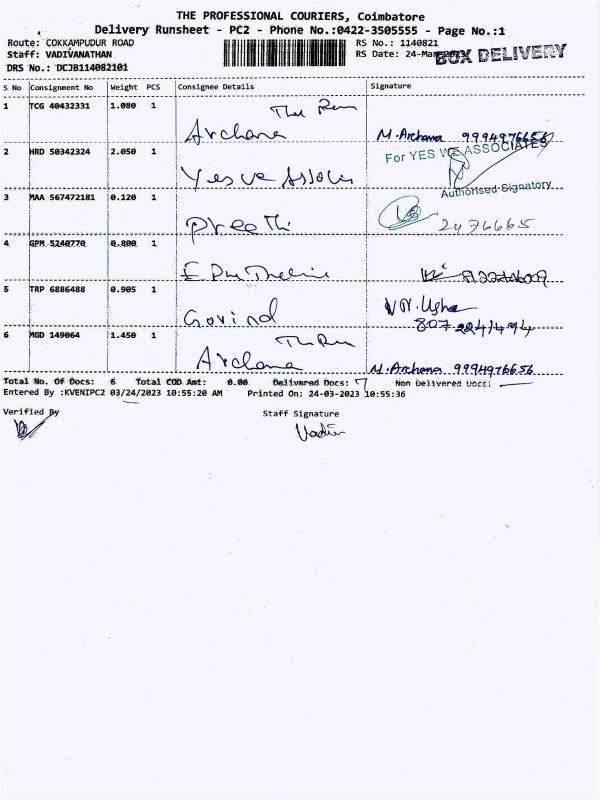 THE PROFESSIONAL COURIERS, Coimbatore
Delivery Runsheet - PC2 - Phone No.:0422-3505555 - Page No.:1
Route: COKKAMPUDUR ROAD RS No.: 1140821
Staff: VADIVANATHAN RS Date: 24-Mar
BOX DELIVERY
DRS No.: DCJB114082101
S No Consignment No Weight PCS Consignee Details Signature
1 TCG 40432331 1.080 1 Archana M.Archana 9994976656
2 HRD 50342324 2.050 1 For YES WE ASSOCIATES
Authorised Signatory
3 MAA 567472181 0.120 1 Preethi 2476665
4 GPM 5240770 0.800 1
5 TRP 6886488 0.905 1 Govind
6 MGD 149064 1.450 1 Archana M.Archana 9994976656
Total No. Of Docs: 6 Total COD Amt: 0.00 Delivered Docs: 7 Non Delivered Docs:
Entered By :KVENIPC2 03/24/2023 10:55:20 AM Printed On: 24-03-2023 10:55:36
Verified By Staff Signature